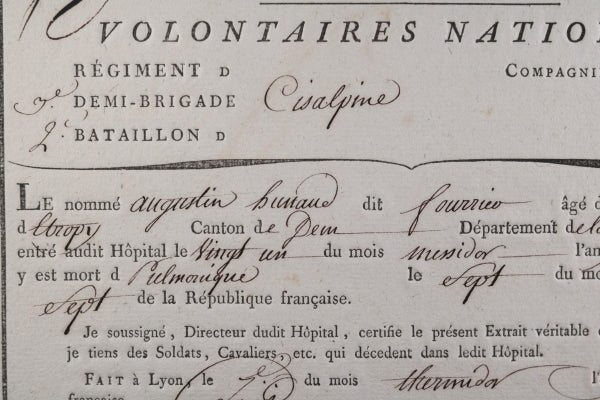 VOLONTAIRES NATIO
RÉGIMENT D COMPAGNI
3e DEMI-BRIGADE Cisalpine
2e BATAILLON D
LE nommé augustin dit fourrico âgé d
d Etropy Canton de Dem Département de
entré audit Hôpital le vingt un du mois messidor l'an
y est mort d Pulmonique le sept du mo
sept de la République française.
Je soussigné, Directeur dudit Hôpital, certifie le présent Extrait véritable
je tiens des Soldats, Cavaliers, etc. qui décedent dans ledit Hôpital.
FAIT à Lyon, le du mois thermidor l'
française